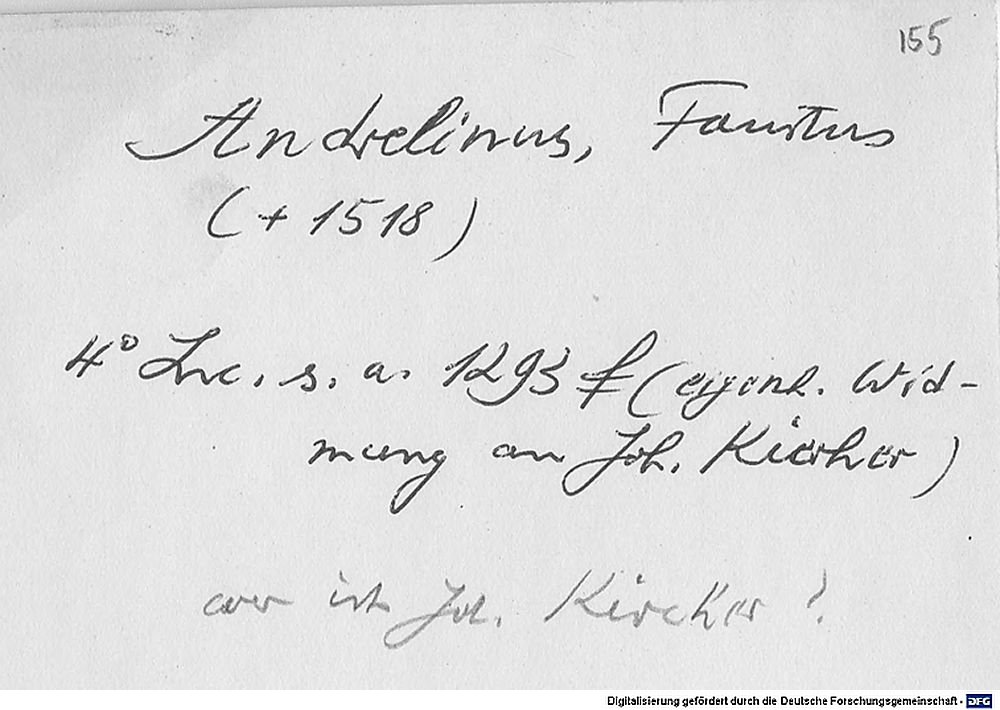 155
Andrelinus, Faustus
(+ 1518)
4° Inc. s. a. 1293 f (eigenh. Wid-
mung an Joh. Kierher)
wer ist Joh. Kircher?
Digitalisierung gefördert durch die Deutsche Forschungsgemeinschaft - DFG